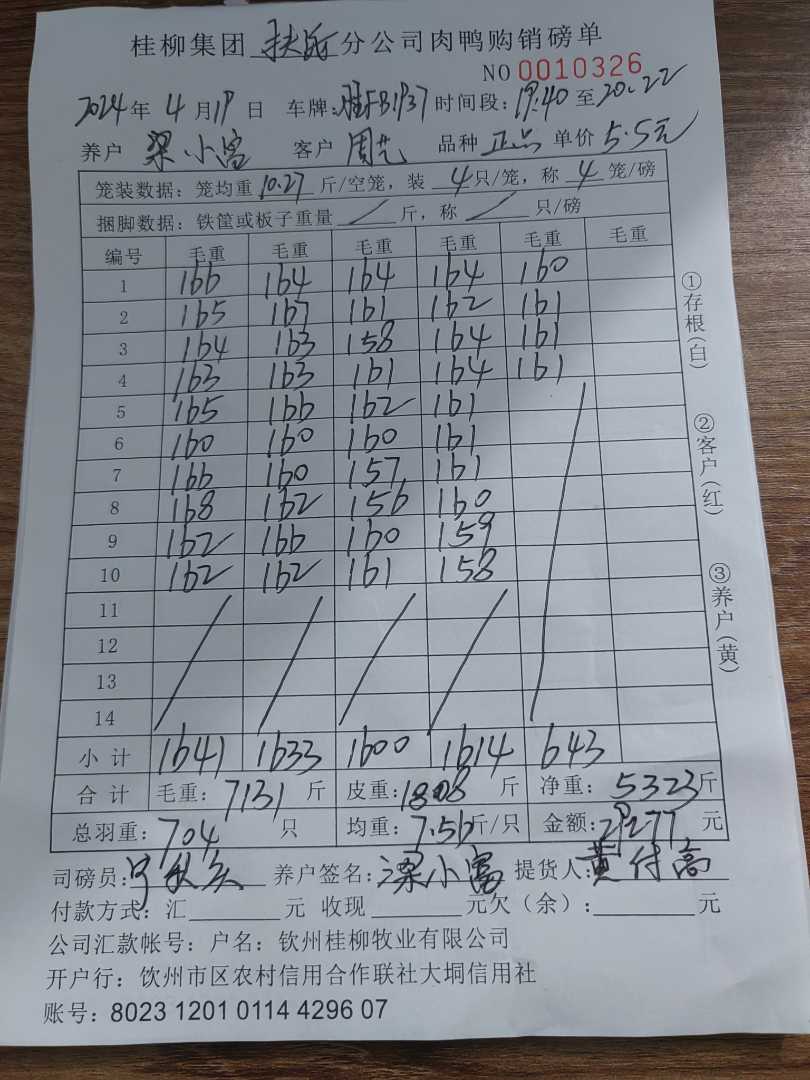 桂柳集团 扶绥 分公司肉鸭购销磅单
NO 0010326
2024年 4月19日 车牌:桂FB1937 时间段:19:40至20:22
养户 梁小富 客户 周艺 品种 正品 单价 5.5元
笼装数据:笼均重 10.27 斤/空笼,装 4 只/笼,称 4 笼/磅
捆脚数据:铁筐或板子重量 / 斤,称 / 只/磅
编号 毛重 毛重 毛重 毛重 毛重 毛重
1 166 164 164 164 160
2 165 167 161 162 161
3 164 163 158 164 161
4 163 163 161 164 161
5 165 166 162 161
6 160 160 160 161
7 166 160 157 161
8 168 162 156 160
9 162 166 160 159
10 162 162 161 158
11
12
13
14
小计 1641 1633 1600 1614 643
合计 毛重:7131 斤 皮重:1808 斤 净重:5323斤
总羽重:704 只 均重:7.56斤/只 金额:29277元
司磅员: 养户签名:梁小富 提货人:黄付高
付款方式:汇 元 收现 元欠(余): 元
公司汇款帐号:户名:钦州桂柳牧业有限公司
开户行:钦州市区农村信用合作联社大垌信用社
账号:8023 1201 0114 4296 07
①存根(白)
②客户(红)
③养户(黄)